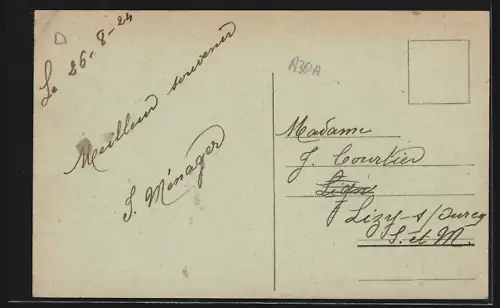 D
Le 26-8-24
Meilleur souvenir
S. Ménager
A30A
Madame
J. Courtier
Lizy-s/Ourcq
S. et M.